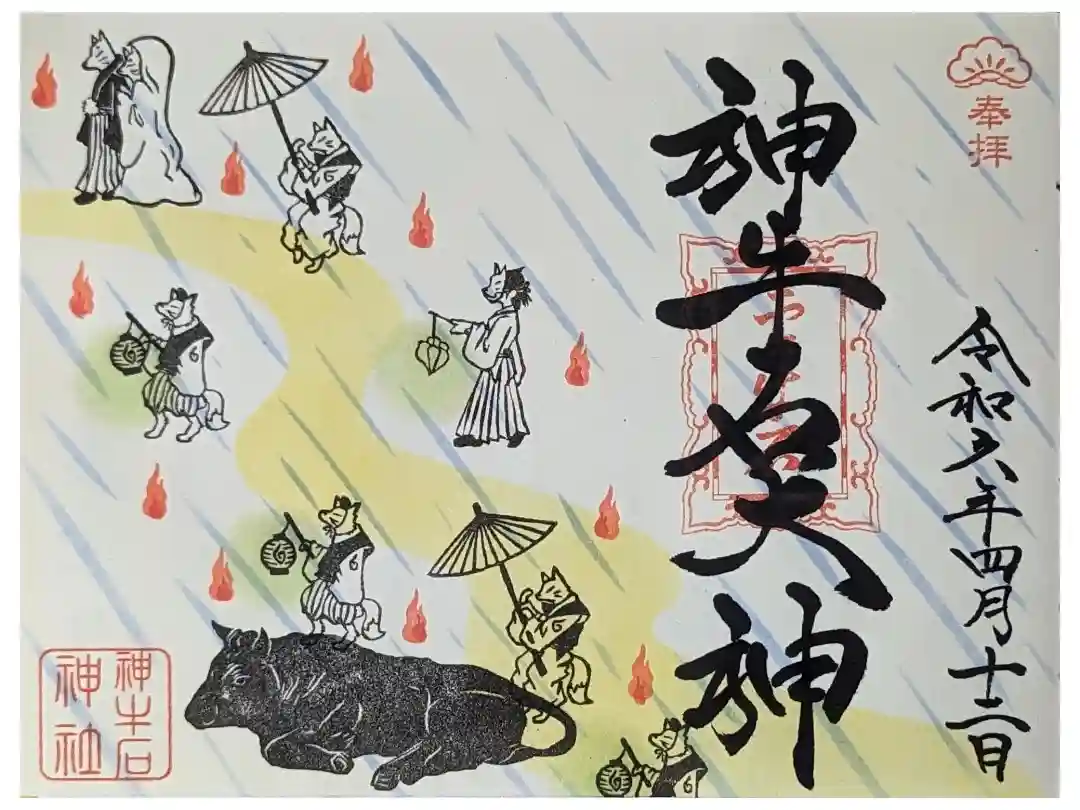 奉拝
神牛石大神
令和六年四月十二日
神牛石
神社